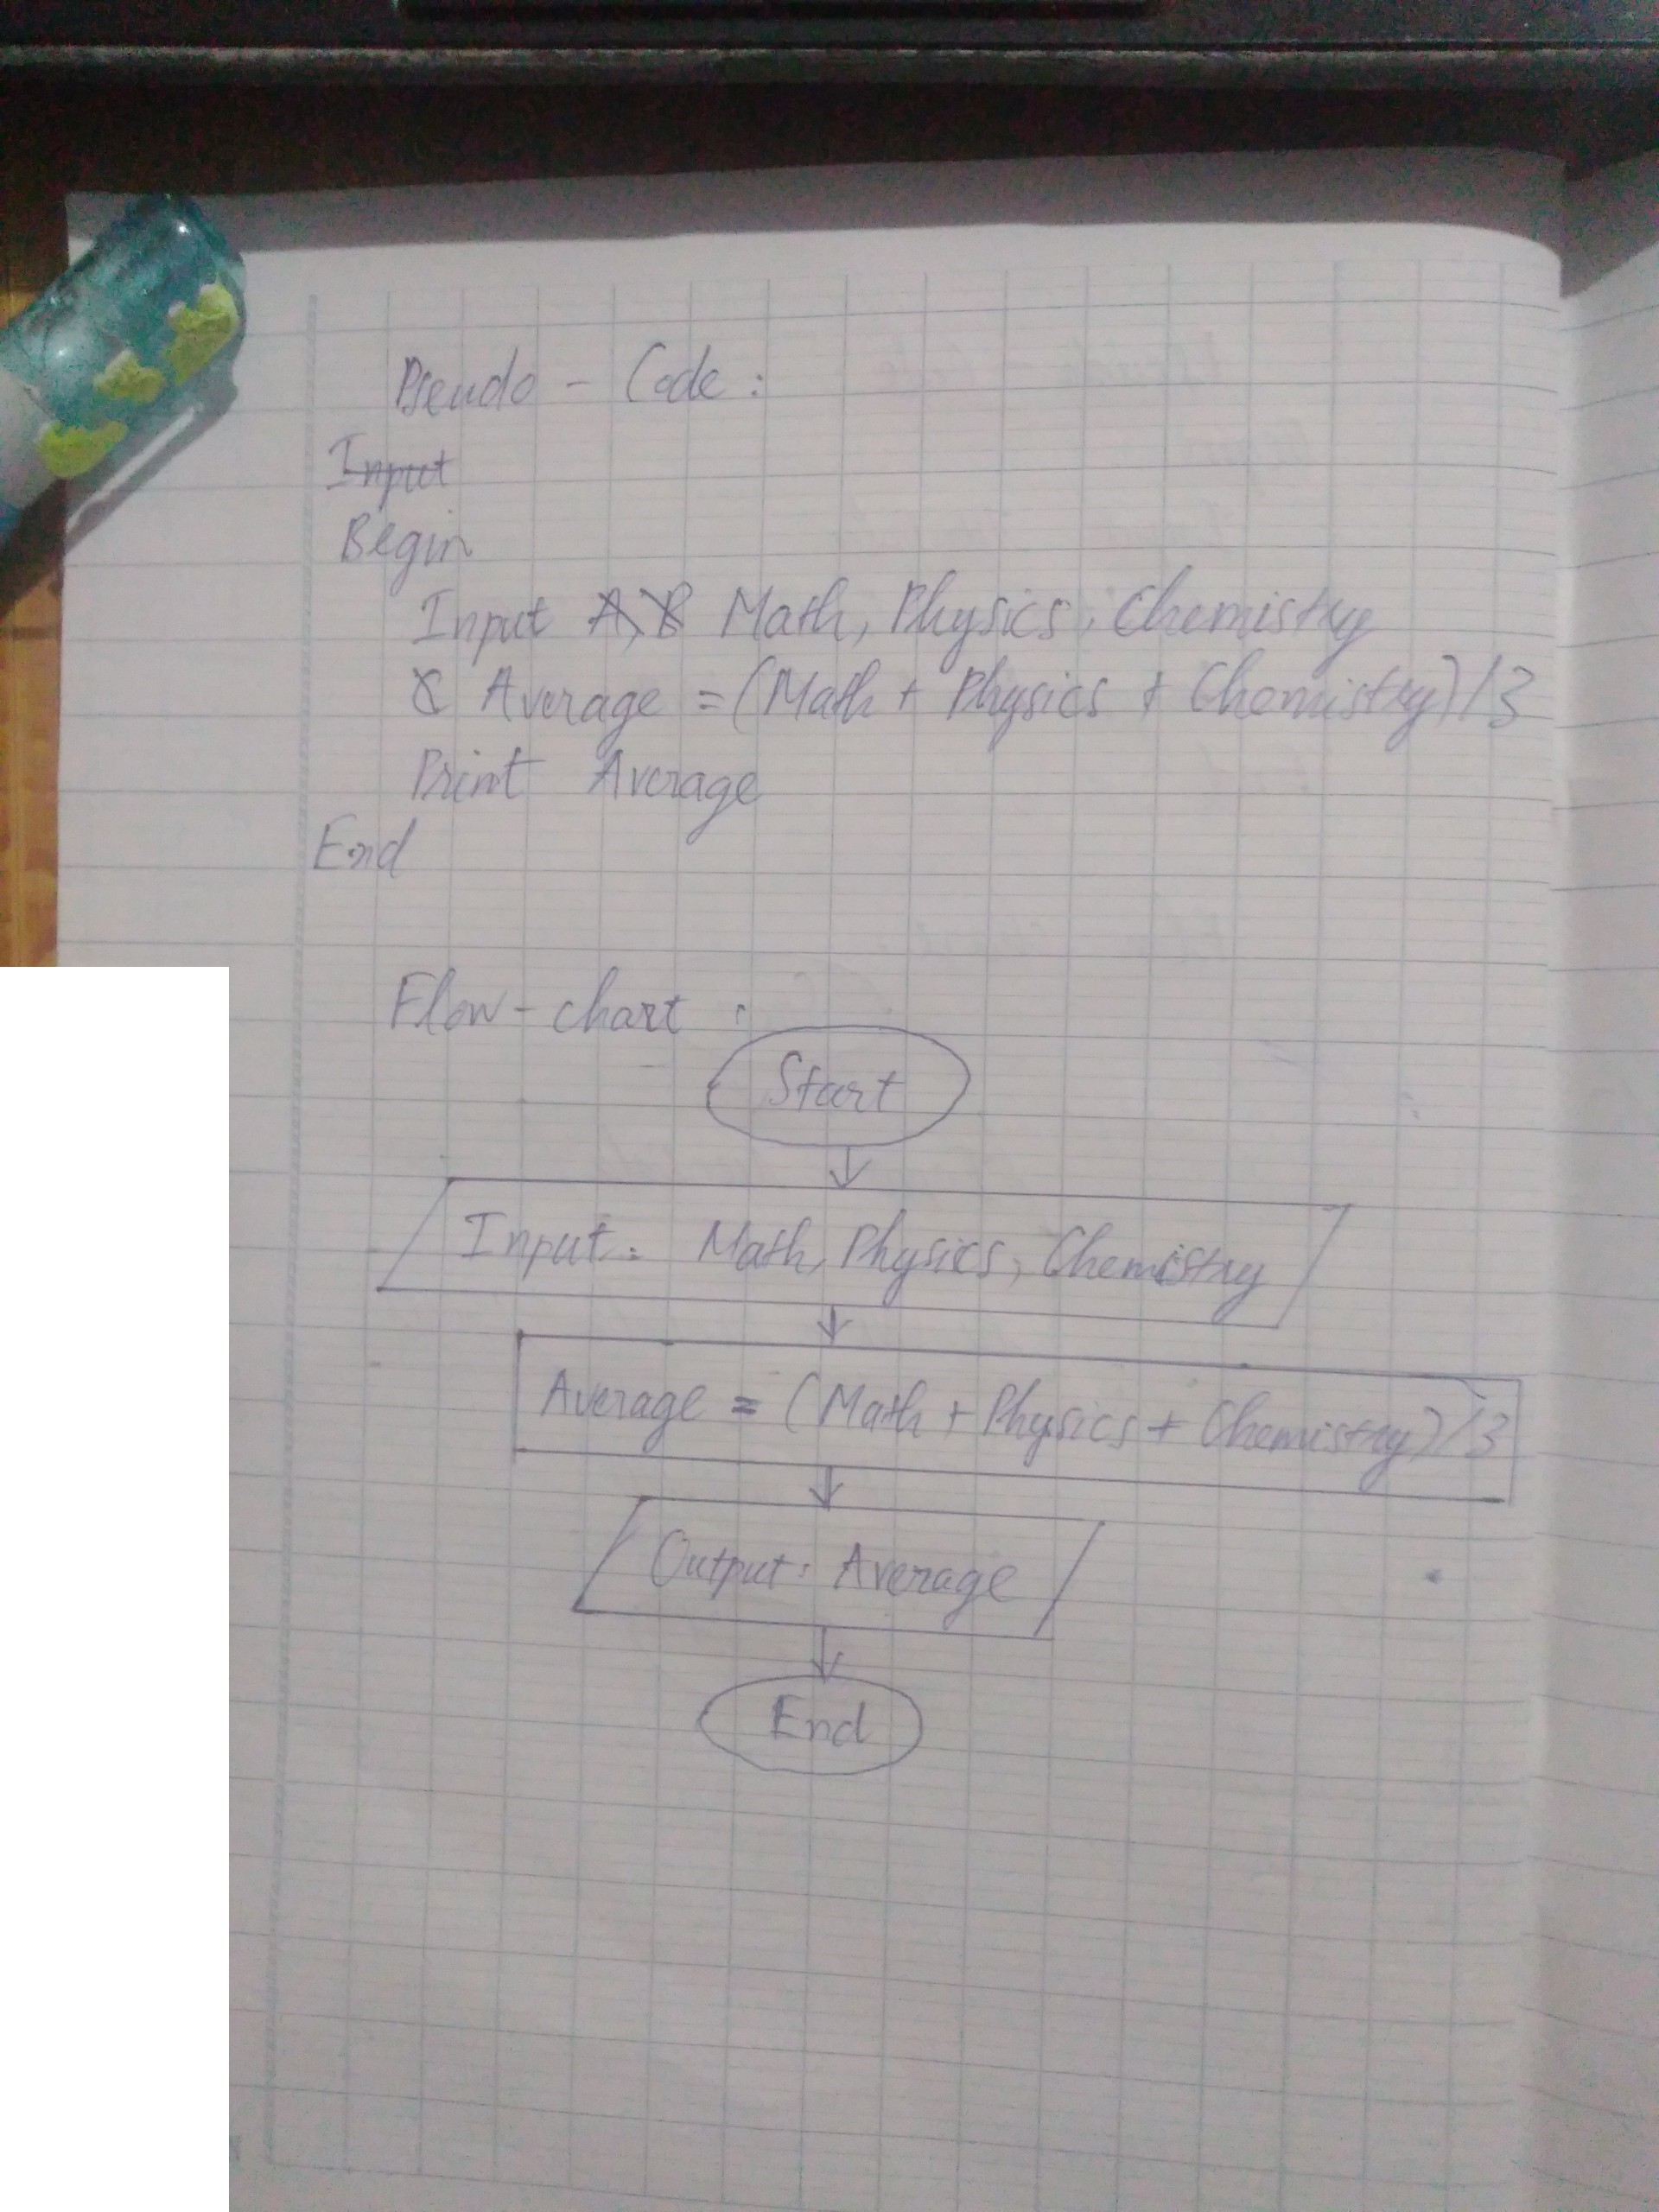 Pseudo - Code :
Input
Begin
Input A, B Math, Physics, Chemistry
C Average = (Math + Physics + Chemistry) / 3
Print Average
End
Flow - chart :
Start
Input: Math, Physics, Chemistry
Average = (Math + Physics + Chemistry) / 3
Output: Average
End